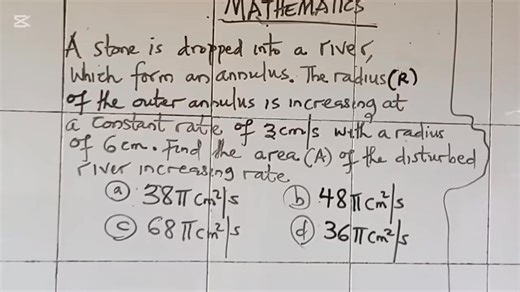 MATHEMATICS
A stone is dropped into a river,
which form an annulus. The radius(R)
of the outer annulus is increasing at
a constant rate of 3cm/s with a radius
of 6cm. Find the area (A) of the disturbed
river increasing rate
(a) 38πcm²/s (b) 48πcm²/s
(c) 68πcm²/s (d) 36πcm²/s